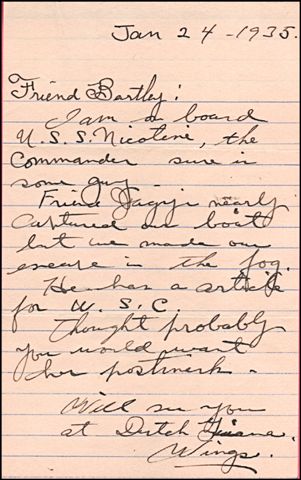 Jan 24-1935.
Friend Bartley:
I am on board
U.S.S. Nicotine, the
Commander sure is
some guy.
Friend nearly
captured our boat
but we made our
escape in the fog.
He has a article
for U.S.C
Thought probably
you would want
her postmark.
Will see you
at Dutch Guiana.
Wings.